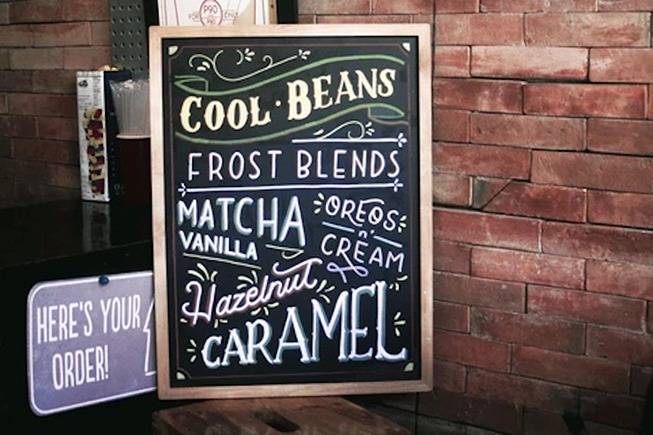 COOL · BEANS
FROST BLENDS
MATCHA
VANILLA
OREOS
n'
CREAM
Hazelnut
CARAMEL
HERE'S YOUR
ORDER!